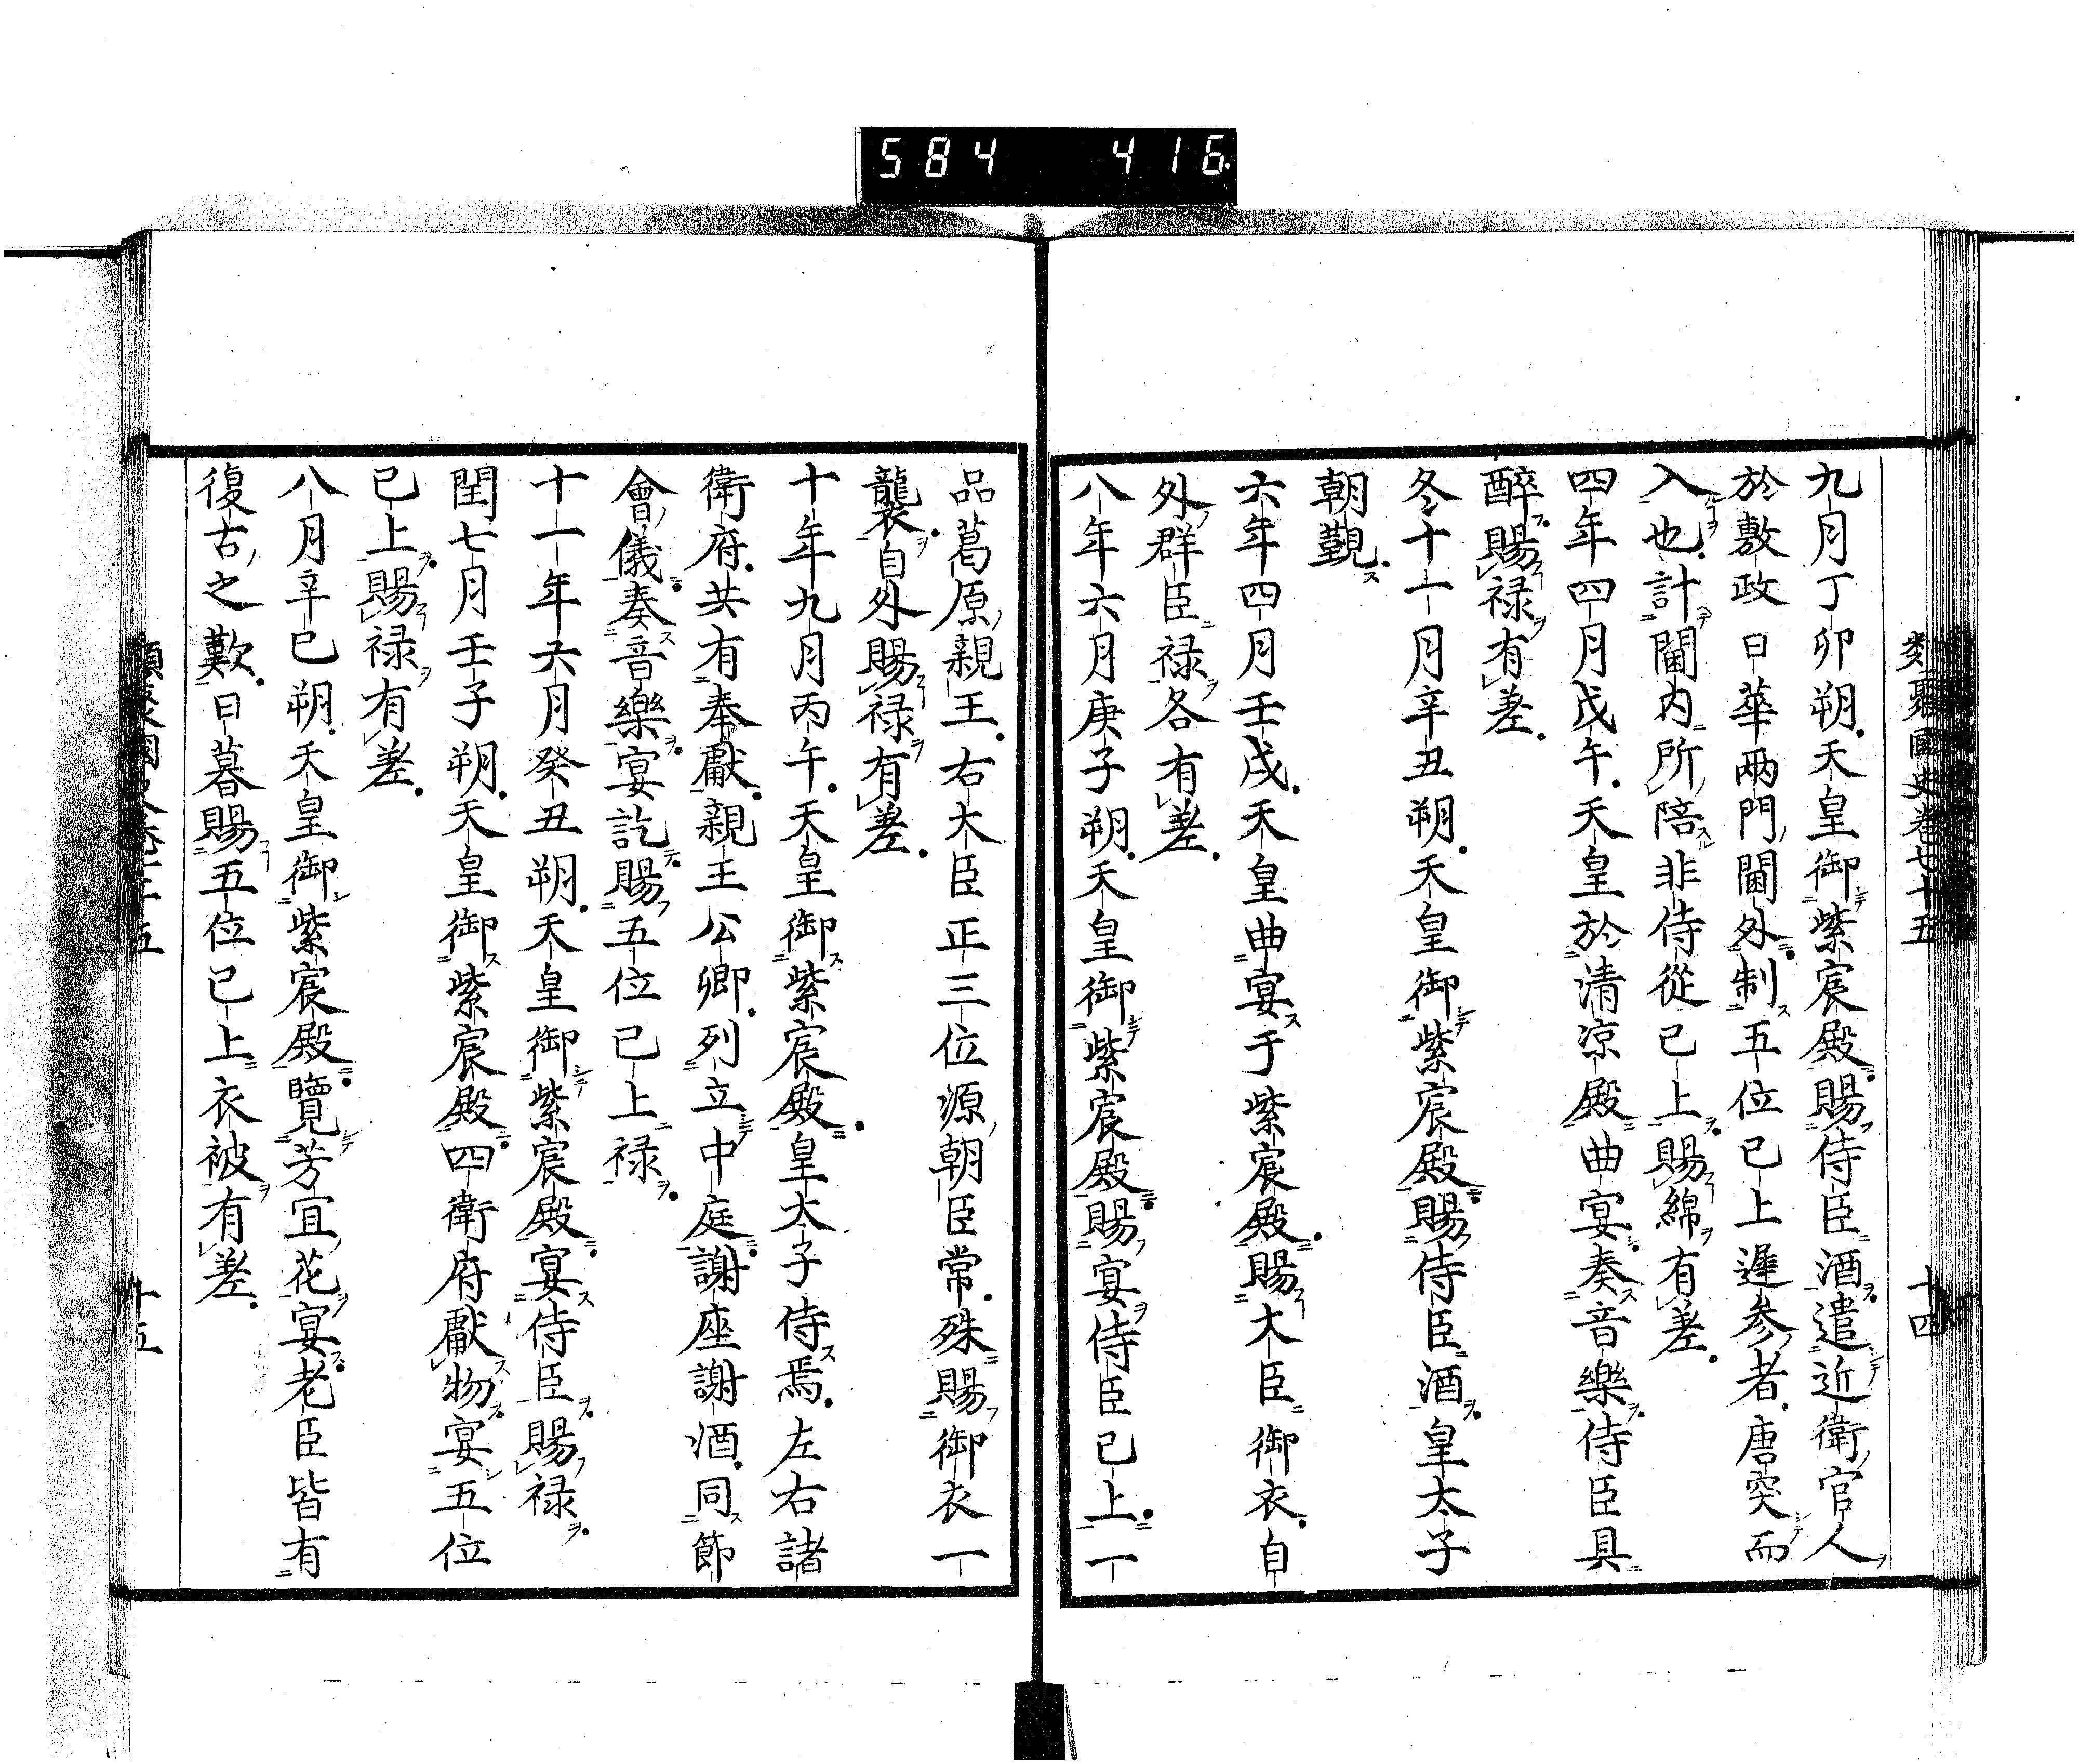 584 416
類聚國史卷七十五 十四
九月丁卯朔天皇御紫宸殿賜侍臣酒遣近衛官人
於敷政日華兩門閫外制五位已上遲参者唐突而
入也計閫内所陪非侍從已上賜綿有差
四年四月戊午天皇於清凉殿曲宴奏音樂侍臣具
醉賜禄有差
冬十一月辛丑朔天皇御紫宸殿賜侍臣酒皇太子
朝覲
六年四月壬戌天皇曲宴于紫宸殿賜大臣御衣自
外群臣禄各有差
八年六月庚子朔天皇御紫宸殿賜宴侍臣已上一
品葛原親王右大臣正三位源朝臣常殊賜御衣一
襲自外賜禄有差
十年九月丙午天皇御紫宸殿皇太子侍焉左右諸
衛府共有奉獻親王公卿列立中庭謝座謝酒同節
會儀奏音樂宴訖賜五位已上禄
十一年六月癸丑朔天皇御紫宸殿宴侍臣賜禄
閏七月壬子朔天皇御紫宸殿四衛府獻物宴五位
已上賜禄有差
八月辛巳朔天皇御紫宸殿覽芳宜花宴老臣皆有
復古之歎日暮賜五位已上衣被有差
十五